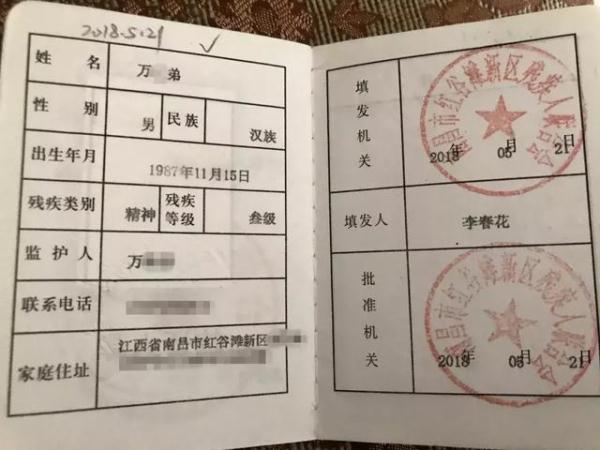 2018.5.21 ✓
姓名 万 弟
性别 男 民族 汉族
出生年月 1987年11月15日
残疾类别 精神 残疾等级 叁级
监护人 万
联系电话
家庭住址 江西省南昌市红谷滩新区
填发机关 南昌市红谷滩新区残疾人联合会
2018年 05月 21日
填发人 李春花
批准机关 南昌市红谷滩新区残疾人联合会
2018年 05月 21日